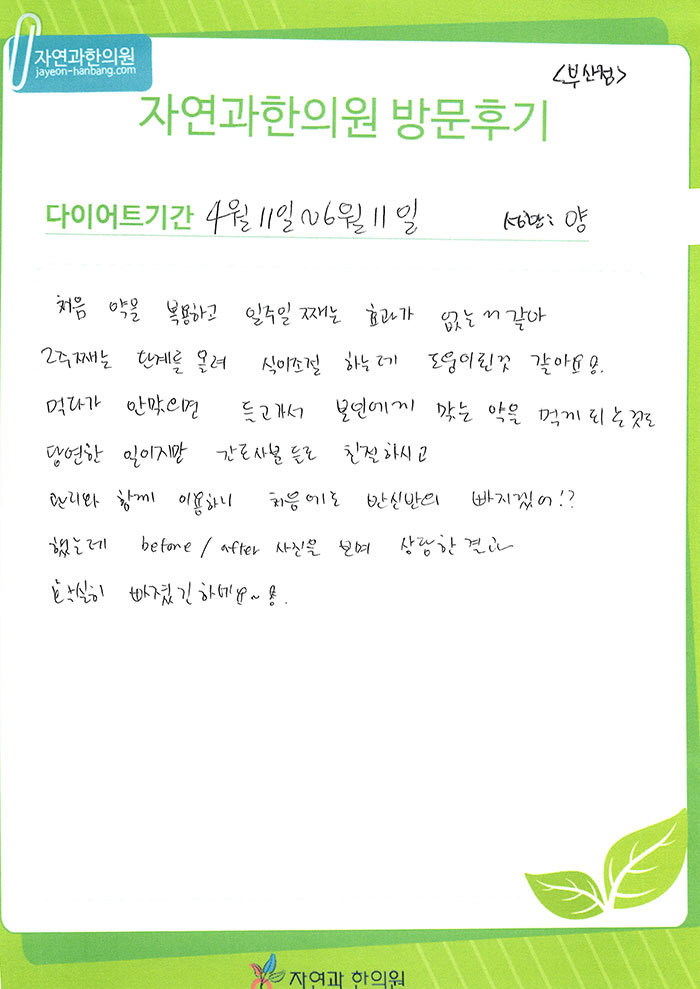 자연과한의원
jayeon-hanbang.com
<부산점>
자연과한의원 방문후기
다이어트기간 4월 11일~6월 11일 양
처음 약을 복용하고 일주일 째는 효과가 없는거 같아
2주째는 단계를 올려 식이조절 하는데 도움이된것 같아요용.
먹다가 안맞으면 듣고가서 본인에게 맞는 약을 먹게 되는것도
당연한 일이지만 간호사분들도 친절하시고
관리와 함께 이용하니 처음에도 반신반의 빠지겠어!?
했는데 before / after 사진을 보며 상담한결과
확실히 빠졌긴하네요~용.
자연과 한의원